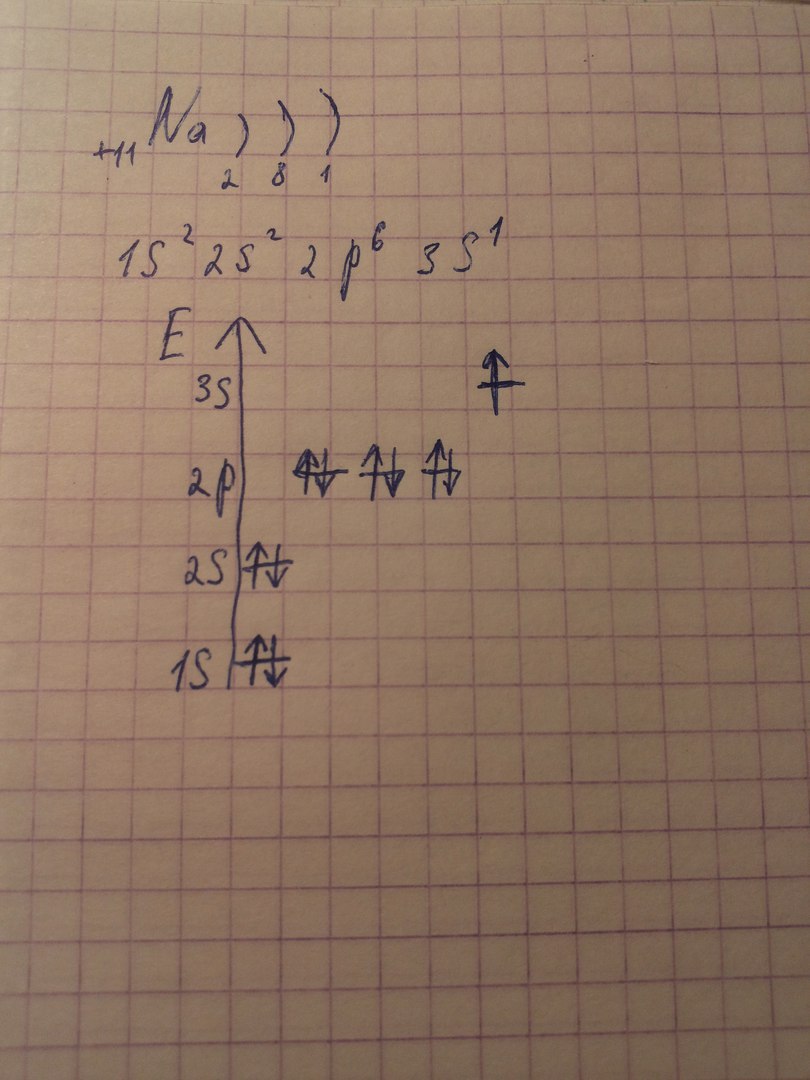 +11 Na ) ) )
2 8 1
1S² 2S² 2p⁶ 3S¹
E
3S ↑
2p ↑↓ ↑↓ ↑↓
2S ↑↓
1S ↑↓